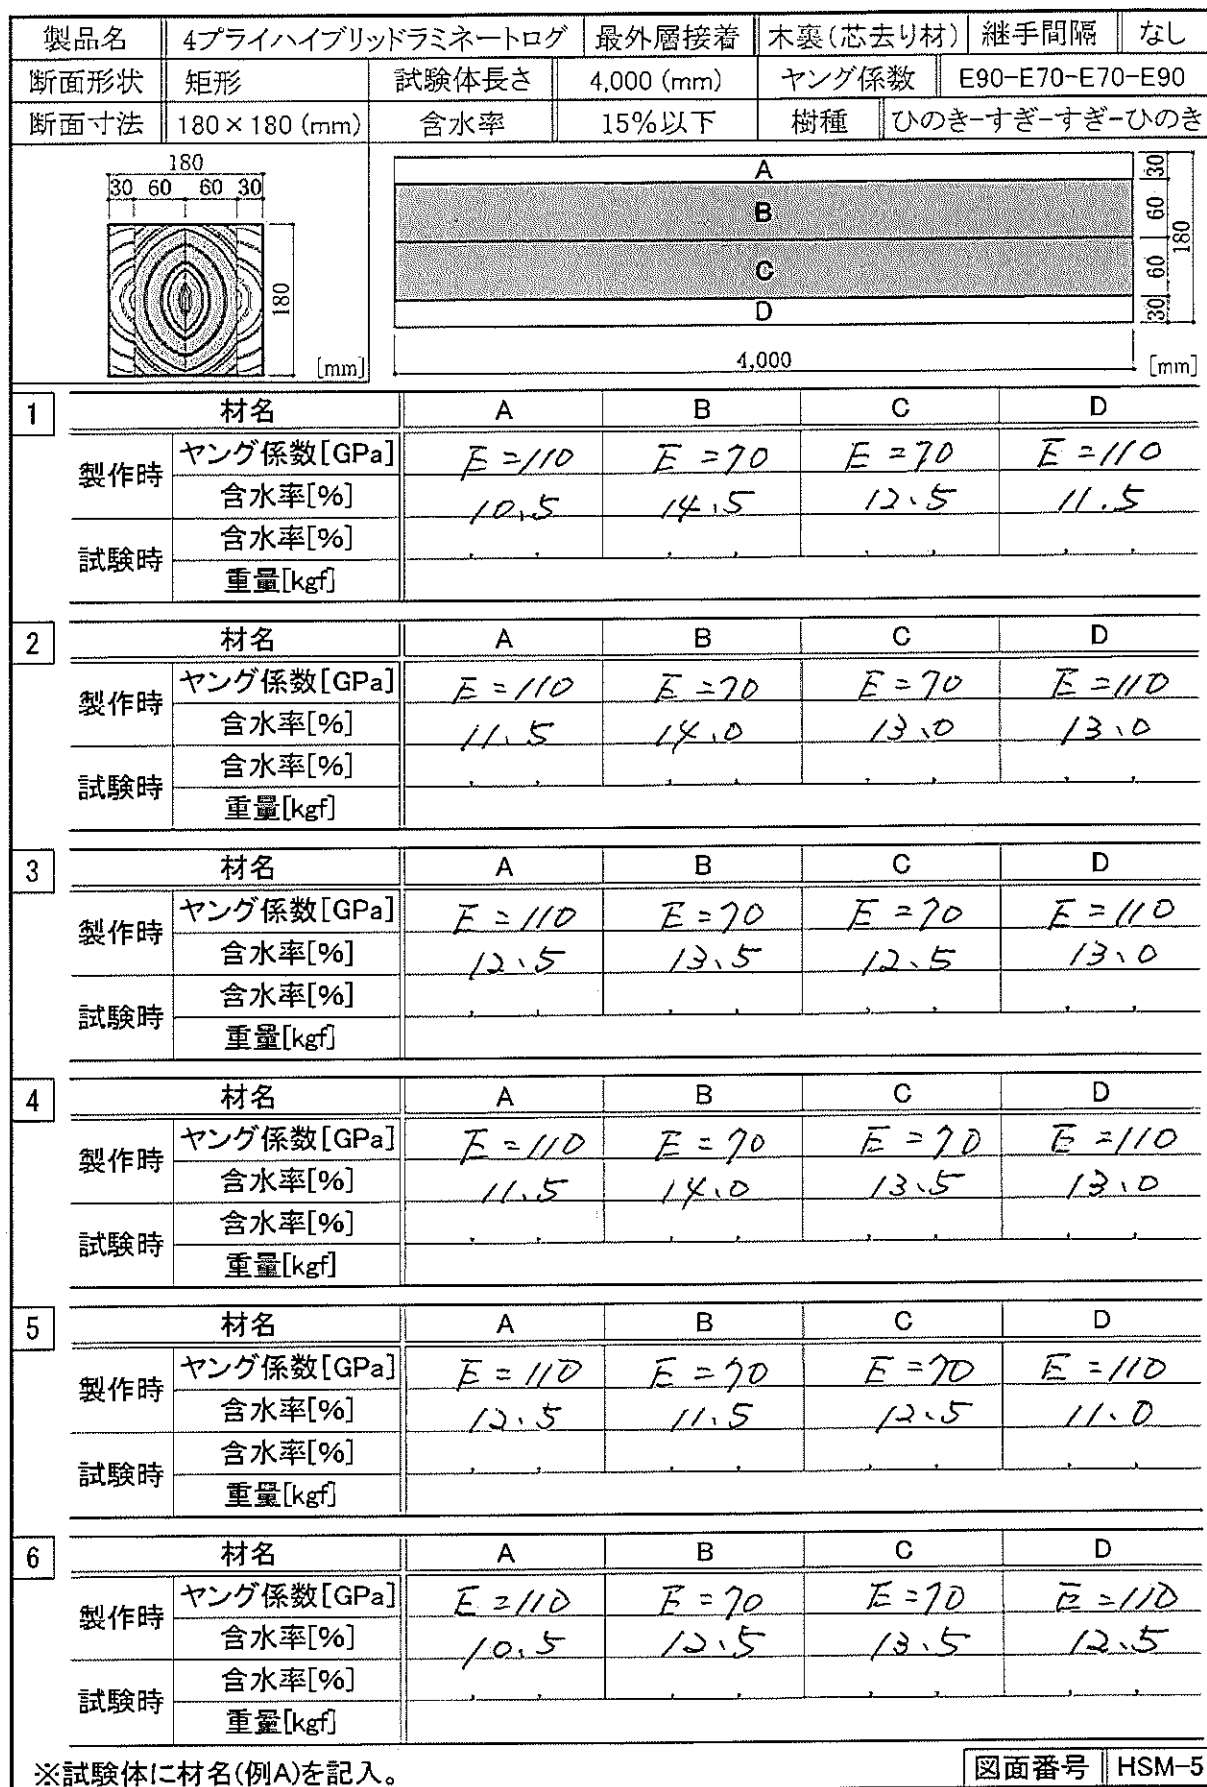 製品名 4プライハイブリッドラミネートログ 最外層接着 木裏(芯去り材) 継手間隔 なし
断面形状 矩形 試験体長さ 4,000 (mm) ヤング係数 E90-E70-E70-E90
断面寸法 180×180 (mm) 含水率 15%以下 樹種 ひのき-すぎ-すぎ-ひのき
180
30 60 60 30
180
[mm]
A 30
B 60
C 60
D 30
180
4,000
[mm]
1 材名 A B C D
製作時 ヤング係数[GPa] E=110 E=70 E=70 E=110
含水率[%] 10.5 14.5 12.5 11.5
試験時 含水率[%]
重量[kgf]
2 材名 A B C D
製作時 ヤング係数[GPa] E=110 E=70 E=70 E=110
含水率[%] 11.5 14.0 13.0 13.0
試験時 含水率[%]
重量[kgf]
3 材名 A B C D
製作時 ヤング係数[GPa] E=110 E=70 E=70 E=110
含水率[%] 12.5 13.5 12.5 13.0
試験時 含水率[%]
重量[kgf]
4 材名 A B C D
製作時 ヤング係数[GPa] E=110 E=70 E=70 E=110
含水率[%] 11.5 14.0 13.5 13.0
試験時 含水率[%]
重量[kgf]
5 材名 A B C D
製作時 ヤング係数[GPa] E=110 E=70 E=70 E=110
含水率[%] 12.5 11.5 12.5 11.0
試験時 含水率[%]
重量[kgf]
6 材名 A B C D
製作時 ヤング係数[GPa] E=110 E=70 E=70 E=110
含水率[%] 10.5 12.5 13.5 12.5
試験時 含水率[%]
重量[kgf]
※試験体に材名(例A)を記入。 図面番号 HSM-5